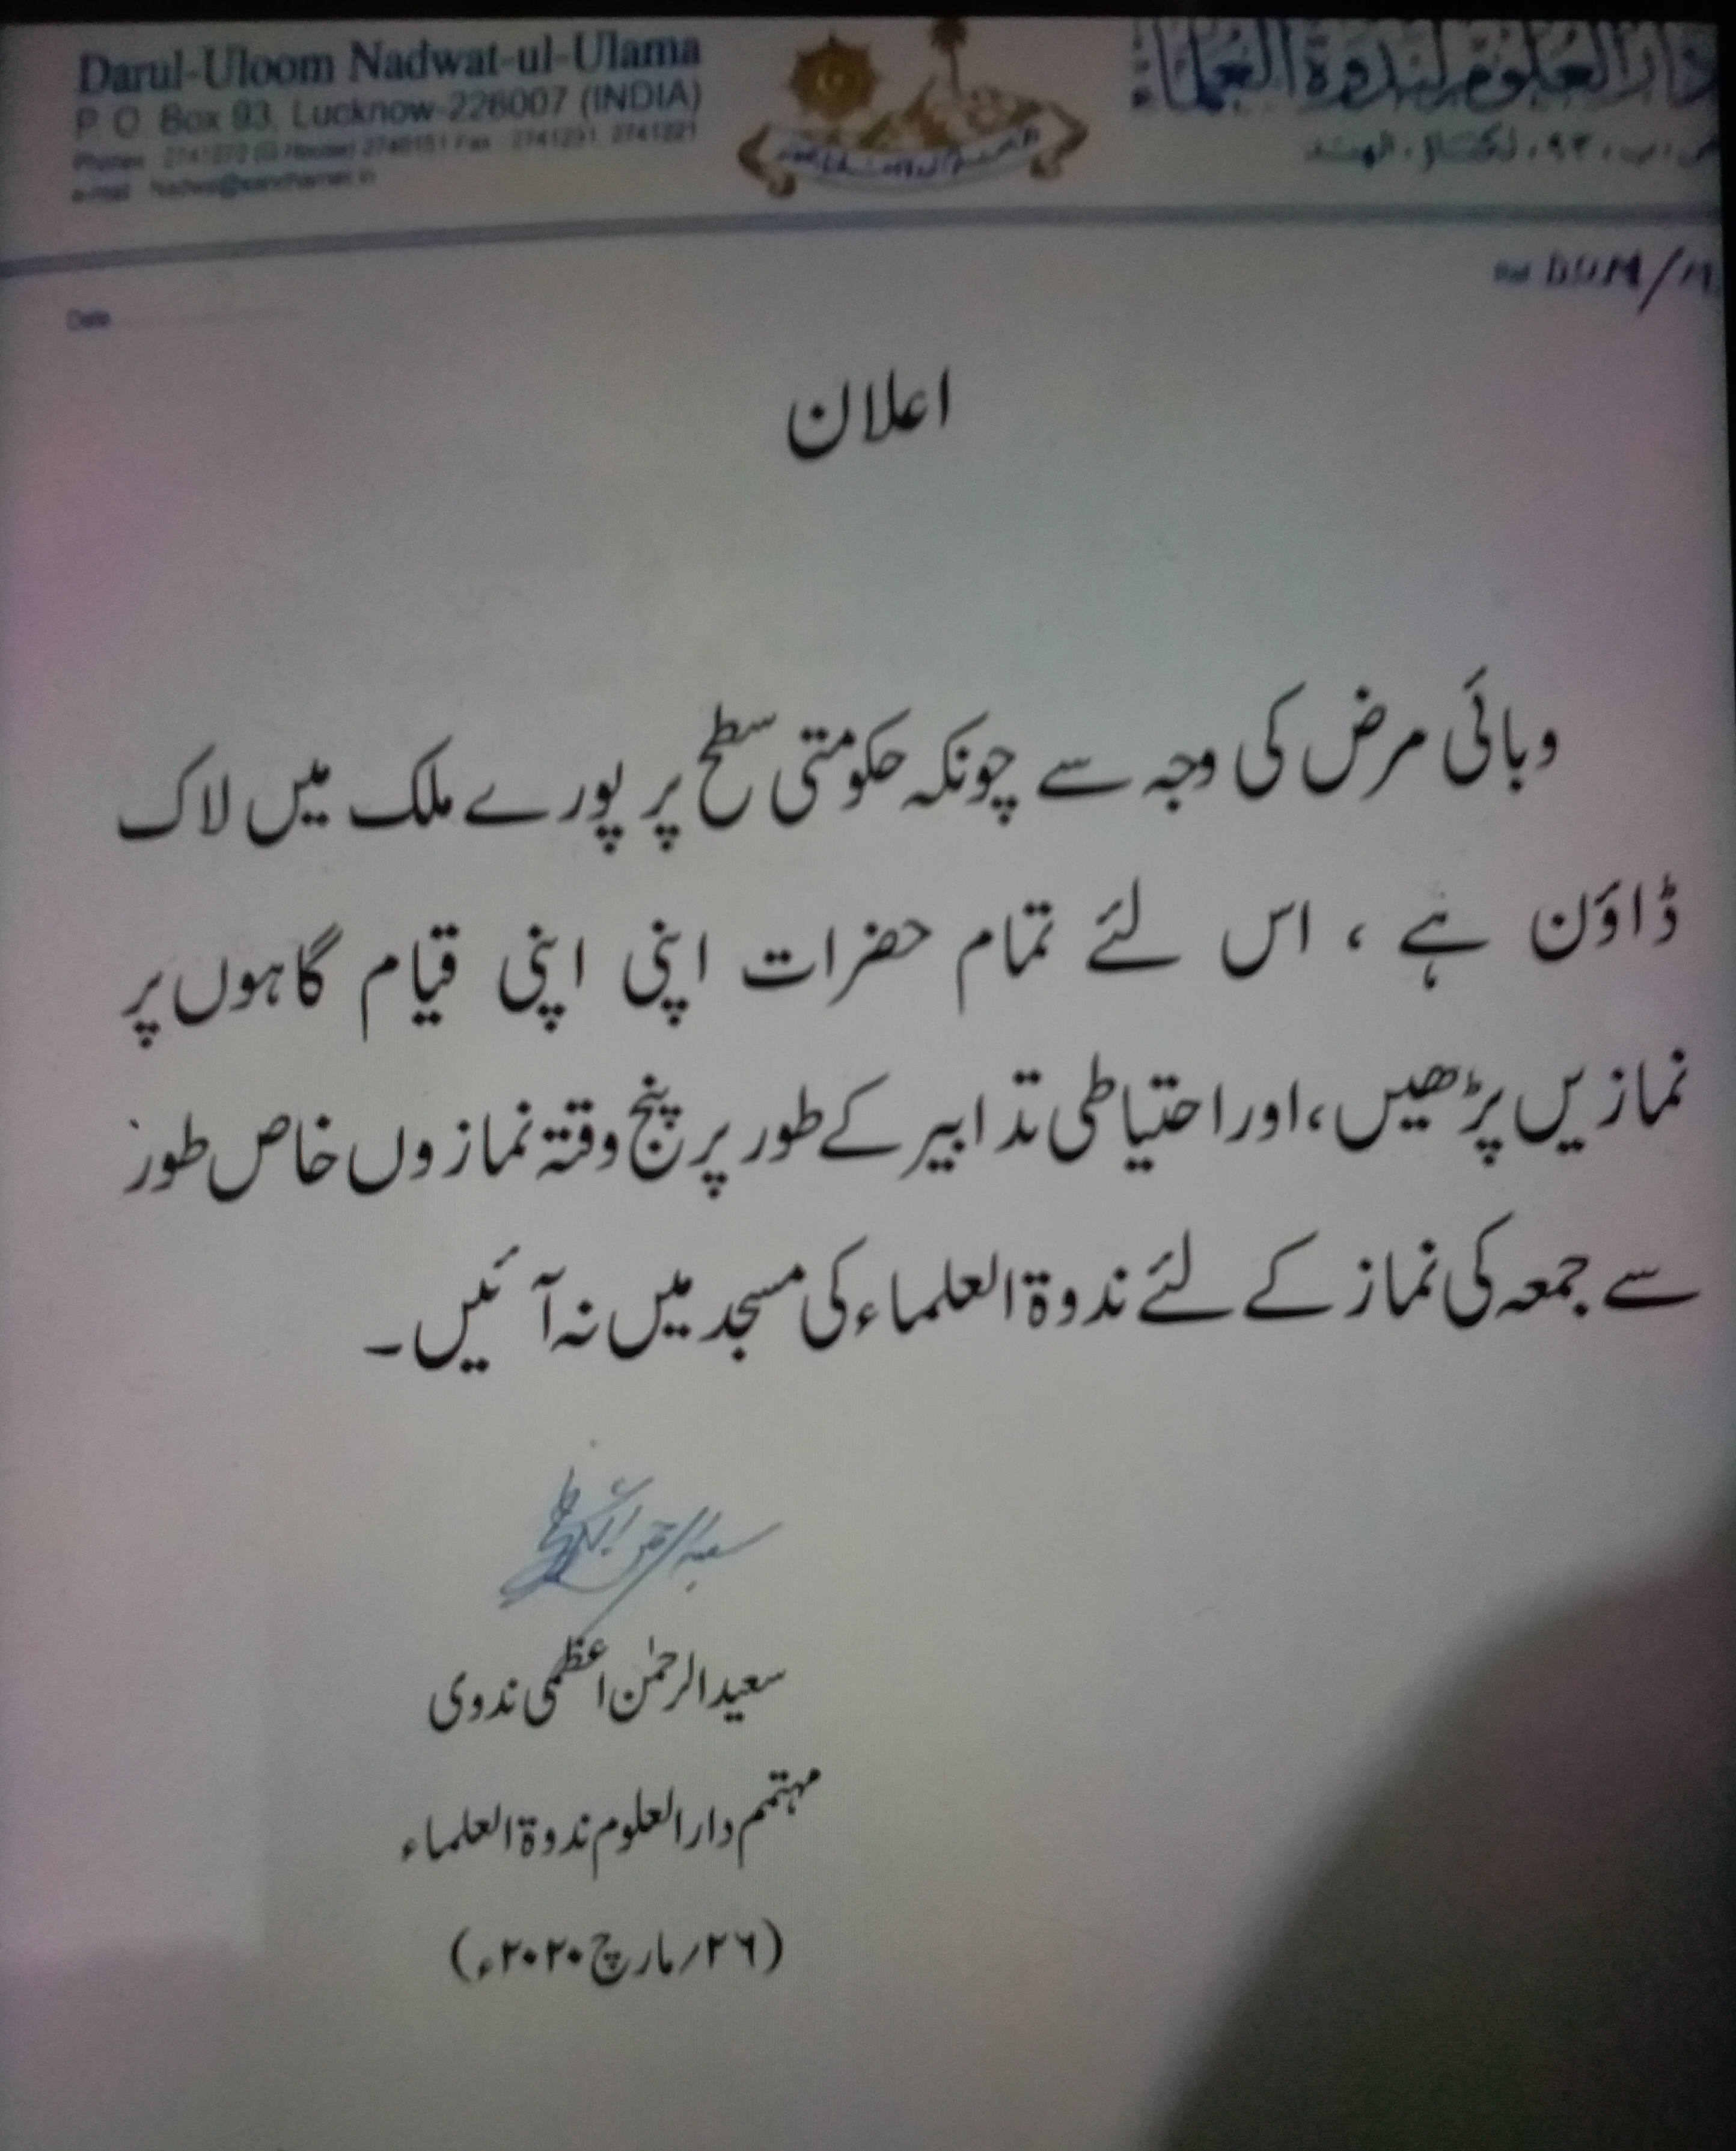 Darul-Uloom Nadwat-ul-Ulama
P. O. Box 93, Lucknow-226007 (INDIA)
e-mail : Nadwa@sancharnet.in
دارالعلوم لندوة العلماء
ص.ب. ۹۳، لکناؤ، الهند
Ref.
Date
اعلان
وبائی مرض کی وجہ سے چونکہ حکومتی سطح پر پورے ملک میں لاک
ڈاؤن ہے ، اس لئے تمام حضرات اپنی اپنی قیام گاہوں پر
نمازیں پڑھیں، اور احتیاطی تدابیر کے طور پر پنج وقتہ نمازوں خاص طور
سے جمعہ کی نماز کے لئے ندوۃ العلماء کی مسجد میں نہ آئیں۔
سعید الرحمٰن اعظمی ندوی
مہتمم دارالعلوم ندوۃ العلماء
(۲۶/مارچ ۲۰۲۰ء)